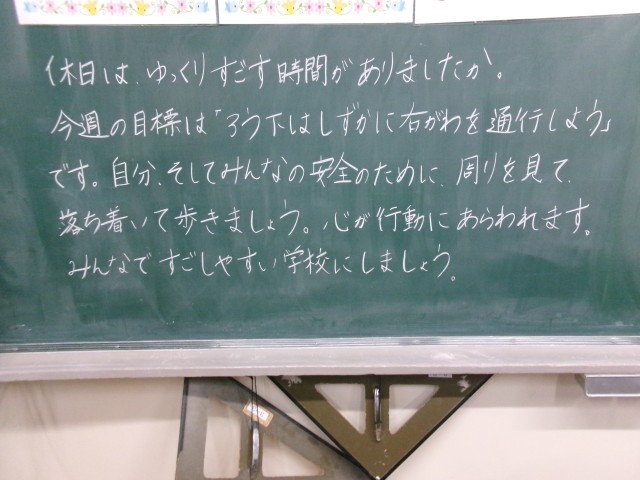 休日は、ゆっくりすごす時間がありましたか。
今週の目標は「ろう下はしずかに右がわを通行しよう」
です。自分、そしてみんなの安全のために、周りを見て、
落ち着いて歩きましょう。心が行動にあらわれます。
みんなですごしやすい学校にしましょう。